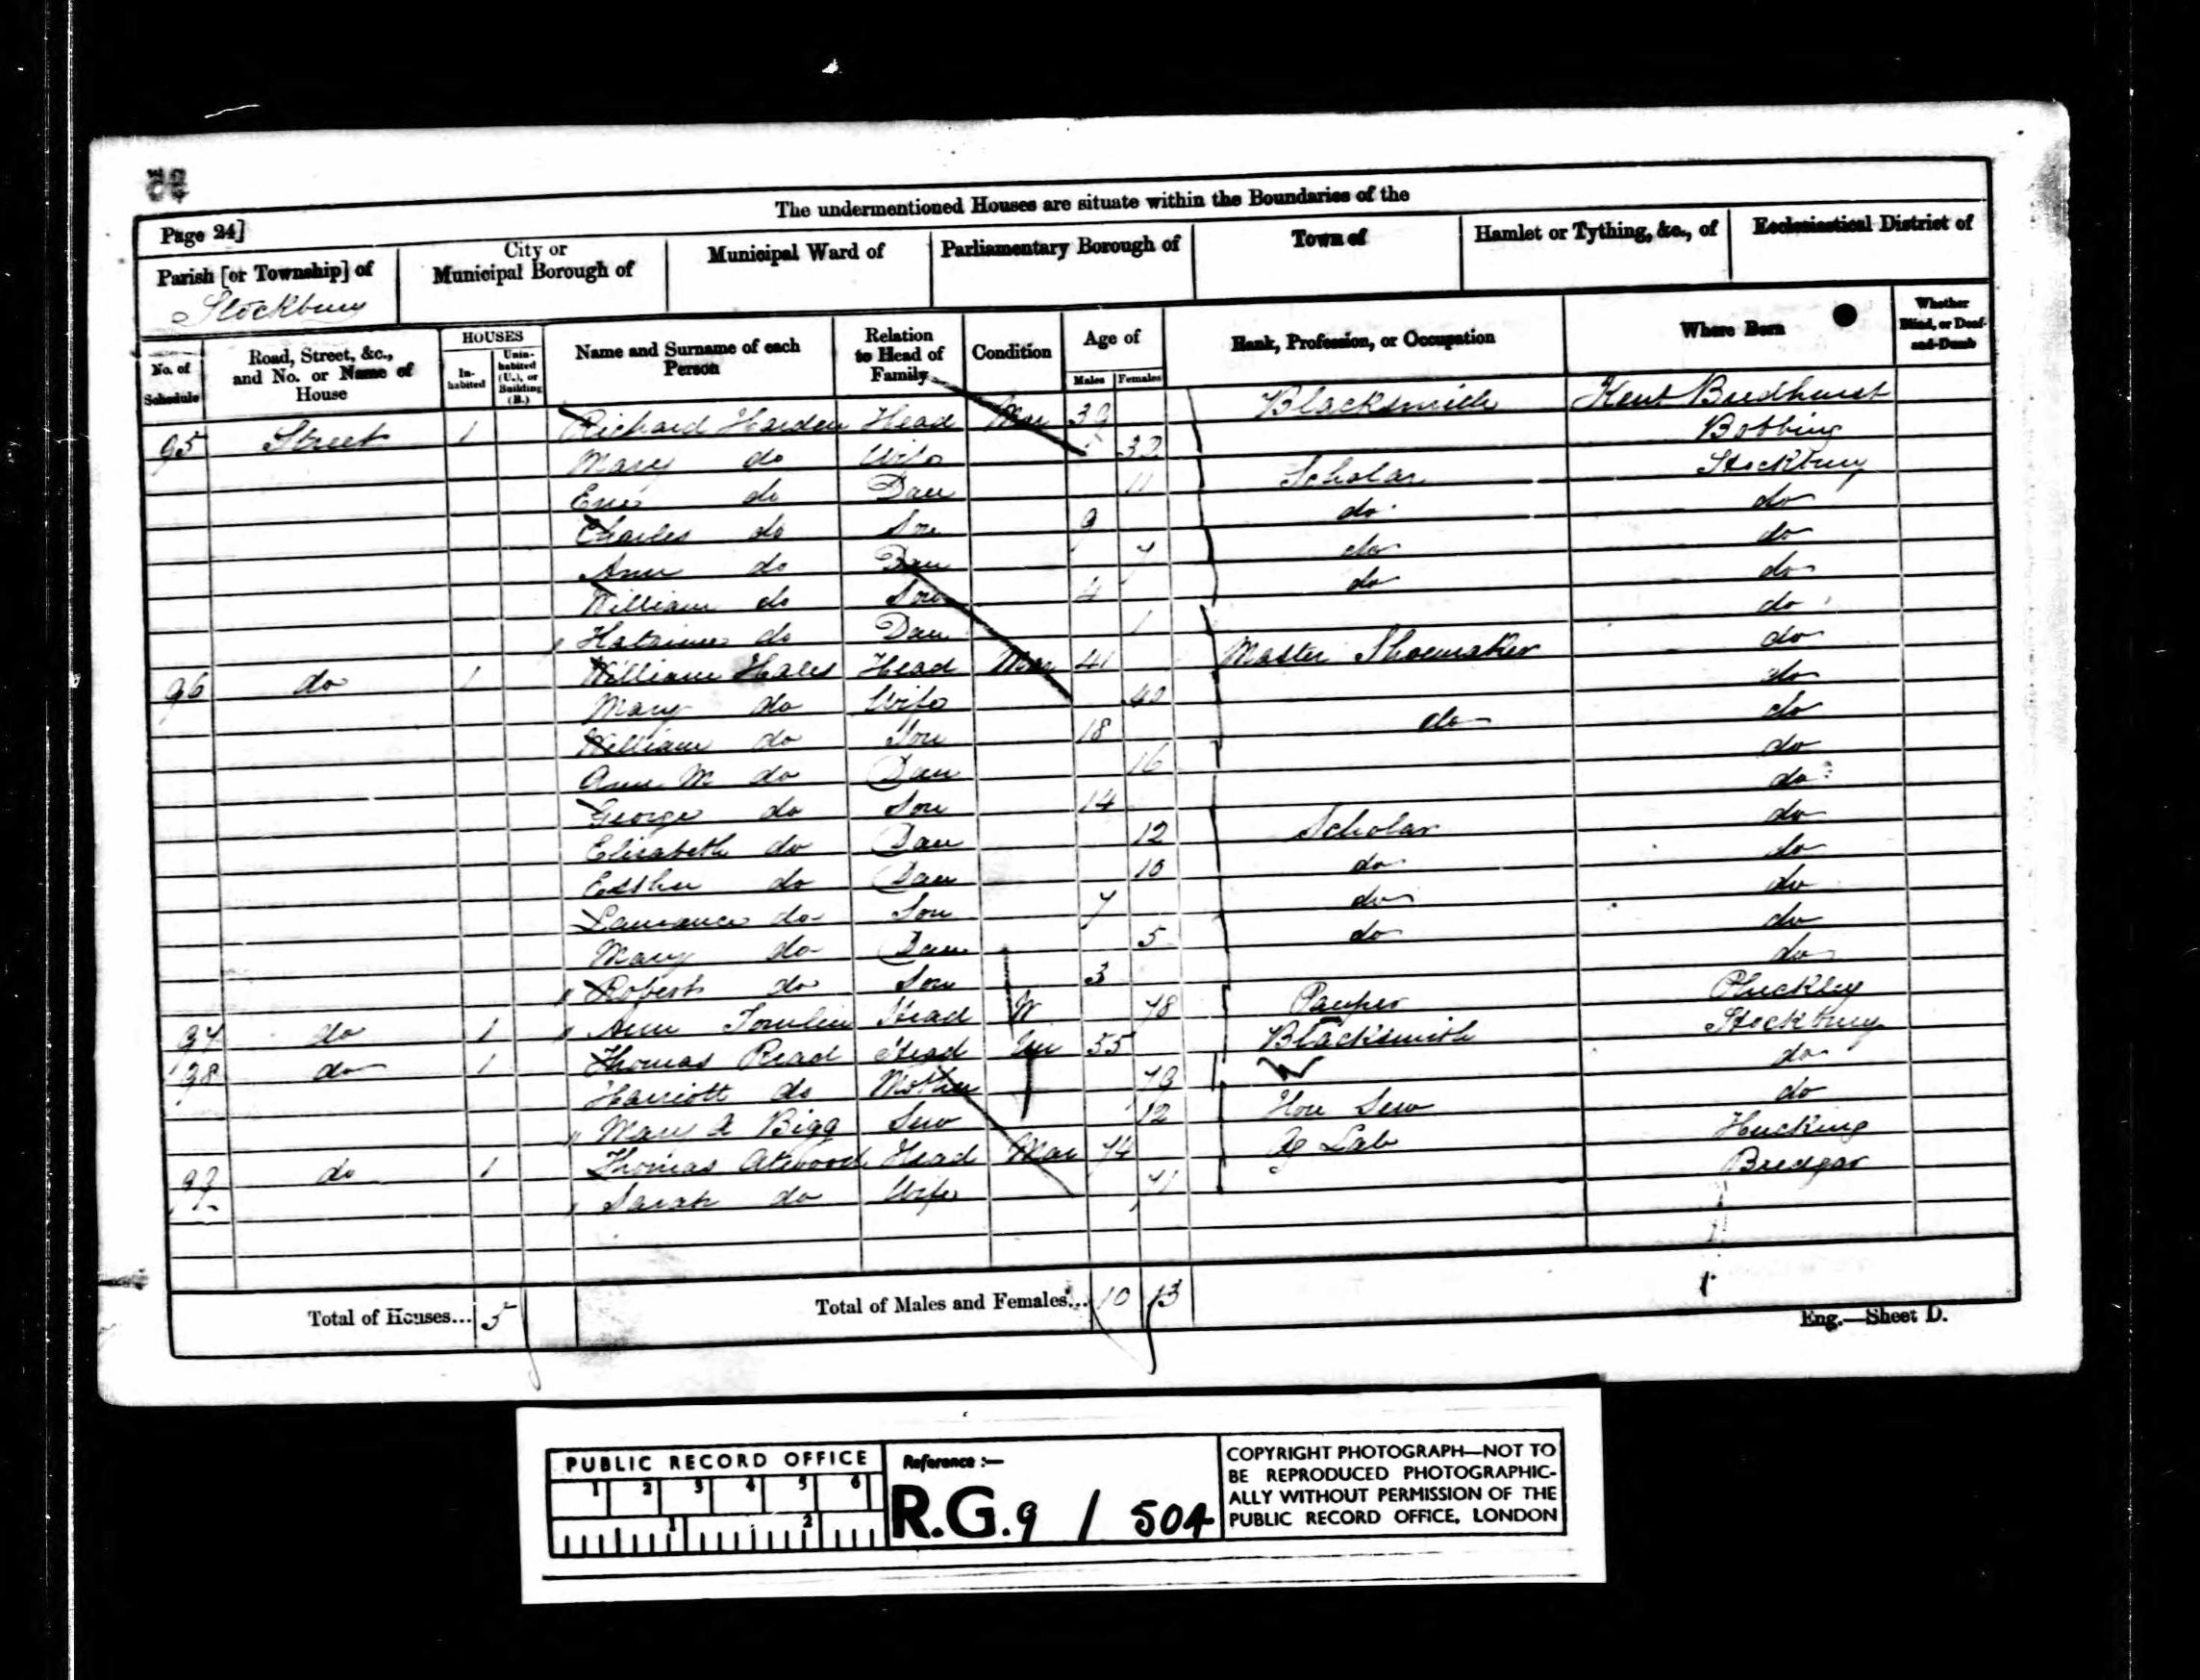 The undermentioned Houses are situate within the Boundaries of the
Page 24]
Parish [or Township] of
Stockbury
City or
Municipal Borough of
Municipal Ward of
Parliamentary Borough of
Town of
Hamlet or Tything, &c., of
Ecclesiastical District of
No. of
Schedule
Road, Street, &c.,
and No. or Name of
House
HOUSES
In-
habited
Unin-
habited
(U.), or
Building
(B.)
Name and Surname of each
Person
Relation
to Head of
Family
Condition
Age of
Males Females
Rank, Profession, or Occupation
Where Born
Whether
Blind, or Deaf-
and-Dumb
95 Street 1 Richard Harden Head Mar 39 Blacksmith Kent Bredhurst
Mary do Wife 32 Bobbing
do Dau 11 Scholar Stockbury
Charles do Son 9 do do
Ann do Dau 7 do do
William do Son 4 do do
do Dau 1 do
96 do 1 William Hales Head Mar 41 Master Shoemaker do
Mary do Wife 40 do
William do Son 18 do do
Ann M do Dau 16 do
George do Son 14 do
Elizabeth do Dau 12 Scholar do
Esther do Dau 10 do do
Laurance do Son 7 do do
Mary do Dau 5 do do
Robert do Son 3 do
97 do 1 Ann Tomlin Head W 78 Pauper Pluckley
98 do 1 Thomas Read Head Un 55 Blacksmith Stockbury
Harriott do Mother W 79 do
Mary A Bigg Serv 12 Hou Serv do
99 do 1 Thomas Atwood Head Mar 74 Ag Lab Hucking
Sarah do Wife 71 Bredgar
Total of Houses... 5
Total of Males and Females... 10 13
Eng.—Sheet D.
PUBLIC RECORD OFFICE
1 2 3 4 5 6
1 2
Reference :—
R.G. 9 / 504
COPYRIGHT PHOTOGRAPH—NOT TO
BE REPRODUCED PHOTOGRAPHIC-
ALLY WITHOUT PERMISSION OF THE
PUBLIC RECORD OFFICE, LONDON